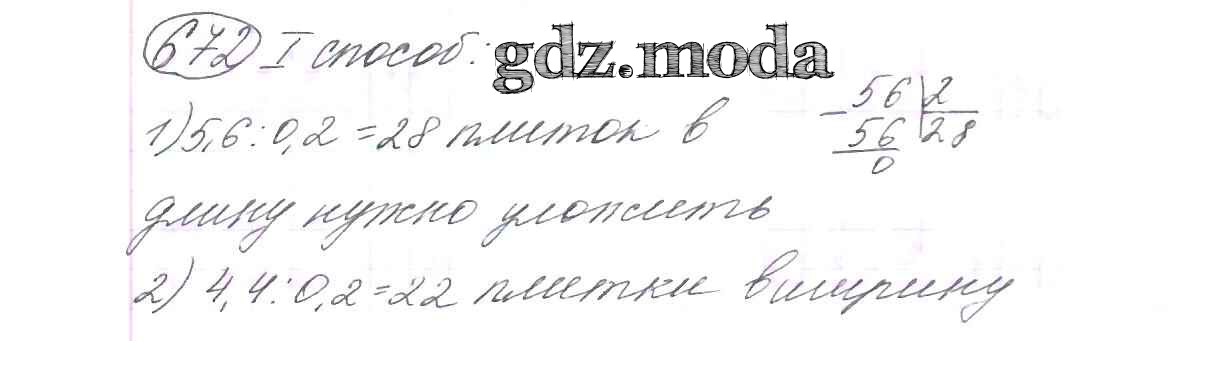 672 I способ: gdz.moda
1) 5,6 : 0,2 = 28 плиток в
длину нужно уложить
2) 4,4 : 0,2 = 22 плитки в ширину
56 | 2
– 56 | 28
0